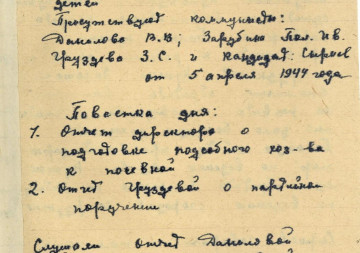 детей
Присутствуют коммунисты:
Данилова В.В; Зарубина Пол. Ив.
Груздева З.С. и кандидат: Сысоев
от 5 апреля 1947 года
Повестка дня:
1. Отчет директора о
подготовке подсобного хоз-ва
к посевной
2. Отчет Груздевой о партийном
поручении
Слушали отчет Даниловой